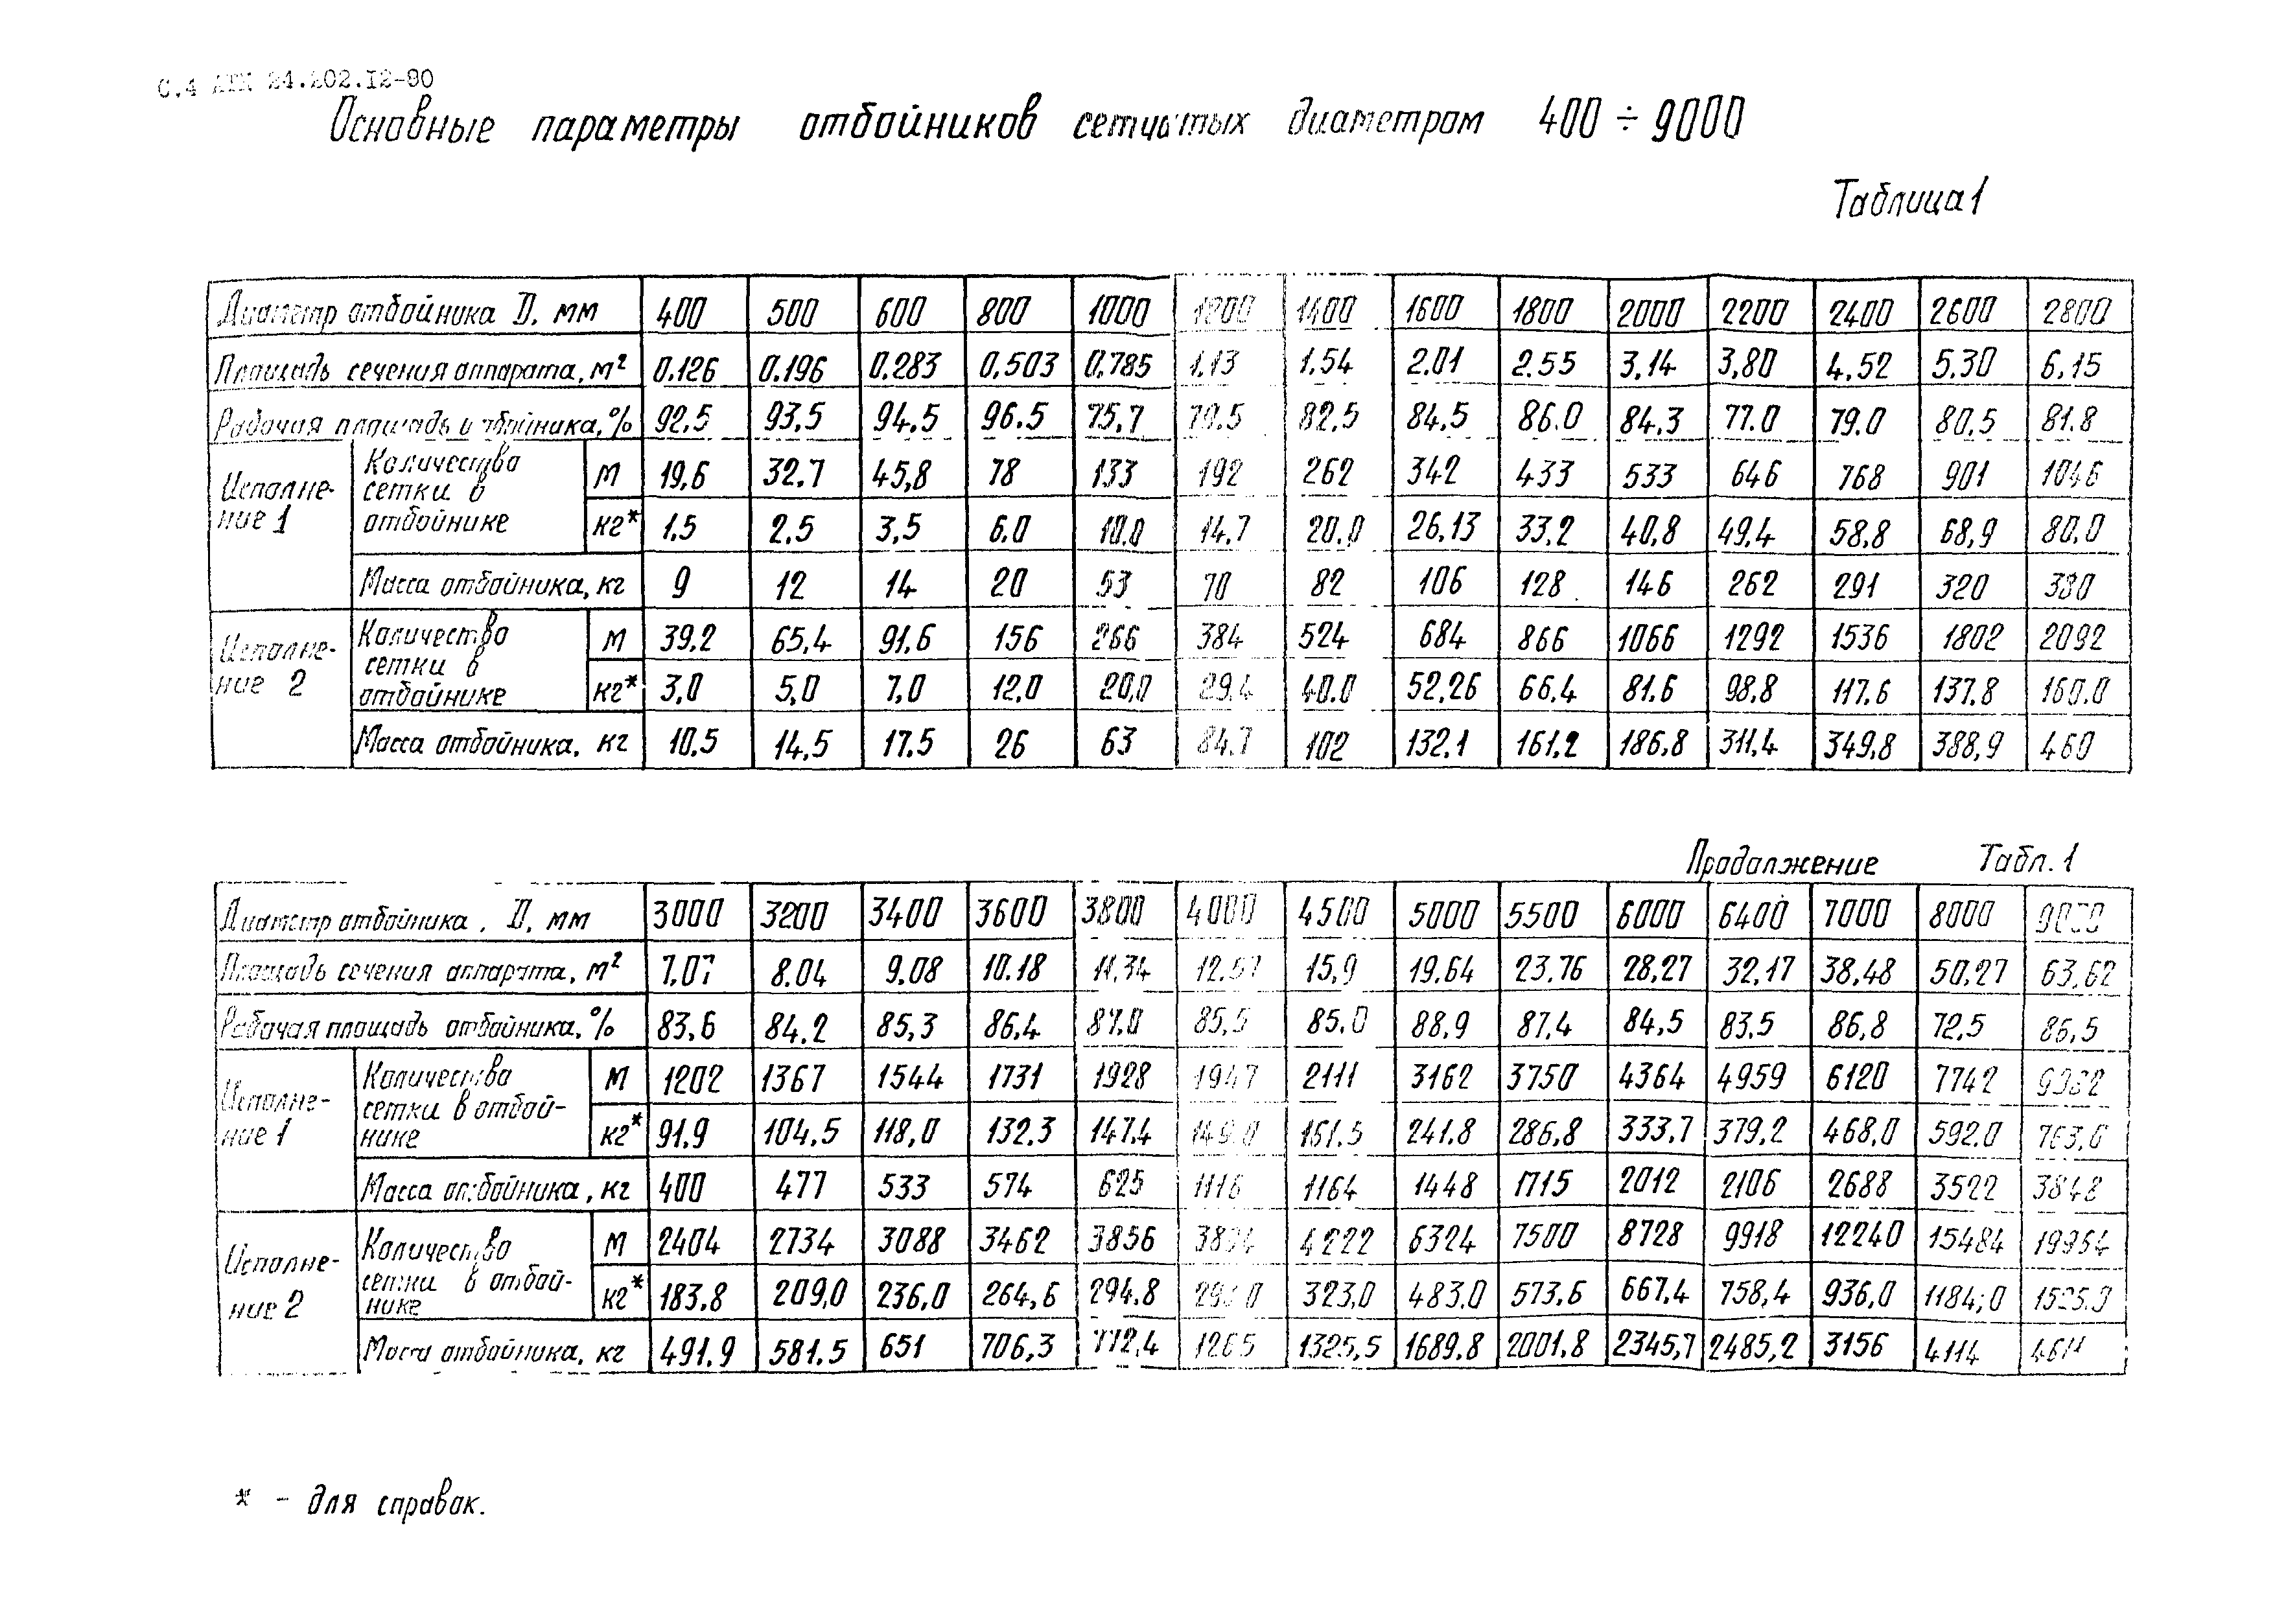 С.4 РТМ 24.202.12-90
Основные параметры отбойников сетчатых диаметром 400 ÷ 9000
Таблица 1
Диаметр отбойника D, мм 400 500 600 800 1000 1200 1400 1600 1800 2000 2200 2400 2600 2800
Площадь сечения аппарата, м² 0.126 0.196 0.283 0.503 0.785 1.13 1.54 2.01 2.55 3.14 3,80 4.52 5.30 6.15
Рабочая площадь отбойника, % 92.5 93,5 94,5 96.5 75,7 79.5 82,5 84,5 86.0 84,3 77.0 79.0 80,5 81.8
Исполне-
ние 1
Количества
сетки в
отбойнике
м 19,6 32.7 45,8 78 133 192 262 342 433 533 646 768 901 1046
кг* 1.5 2.5 3,5 6.0 10.0 14,7 20.0 26,13 33.2 40,8 49.4 58.8 68,9 80.0
Масса отбойника, кг 9 12 14 20 53 70 82 106 128 146 262 291 320 380
Исполне-
ние 2
Количество
сетки в
отбойнике
м 39.2 65.4 91.6 156 266 384 524 684 866 1066 1292 1536 1802 2092
кг* 3,0 5,0 7,0 12,0 20,0 29.4 40.0 52,26 66.4 81.6 98,8 117.6 137.8 160.0
Масса отбойника, кг 10.5 14.5 17.5 26 63 84.7 102 132.1 161.2 186.8 311,4 349.8 388,9 460
Продолжение Табл. 1
Диаметр отбойника, D, мм 3000 3200 3400 3600 3800 4000 4500 5000 5500 6000 6400 7000 8000 9000
Площадь сечения аппарата, м² 7,07 8.04 9.08 10.18 11,34 12.57 15,9 19.64 23.76 28,27 32,17 38,48 50,27 63,62
Рабочая площадь отбойника, % 83,6 84,2 85,3 86,4 87.0 85,5 85,0 88,9 87,4 84,5 83.5 86,8 72,5 86,5
Исполне-
ние 1
Количества
сетки в отбой-
нике
м 1202 1367 1544 1731 1928 1947 2111 3162 3750 4364 4959 6120 7742
кг* 91.9 104.5 118,0 132.3 147.4 149.0 161.5 241.8 286,8 333.7 379,2 468,0 592.0
Масса отбойника, кг 400 477 533 574 625 1116 1164 1448 1715 2012 2106 2688 3522 3848
Исполне-
ние 2
Количество
сетки в отбой-
нике
м 2404 2734 3088 3462 3856 4222 6324 7500 8728 9918 12240 15484
кг* 183.8 209,0 236,0 264,6 294.8 323,0 483.0 573.6 667.4 758,4 936,0 1184,0
Масса отбойника, кг 491.9 581.5 651 706,3 772.4 1265 1325,5 1689.8 2001.8 2345,7 2485,2 3156 4114
* - для справок.